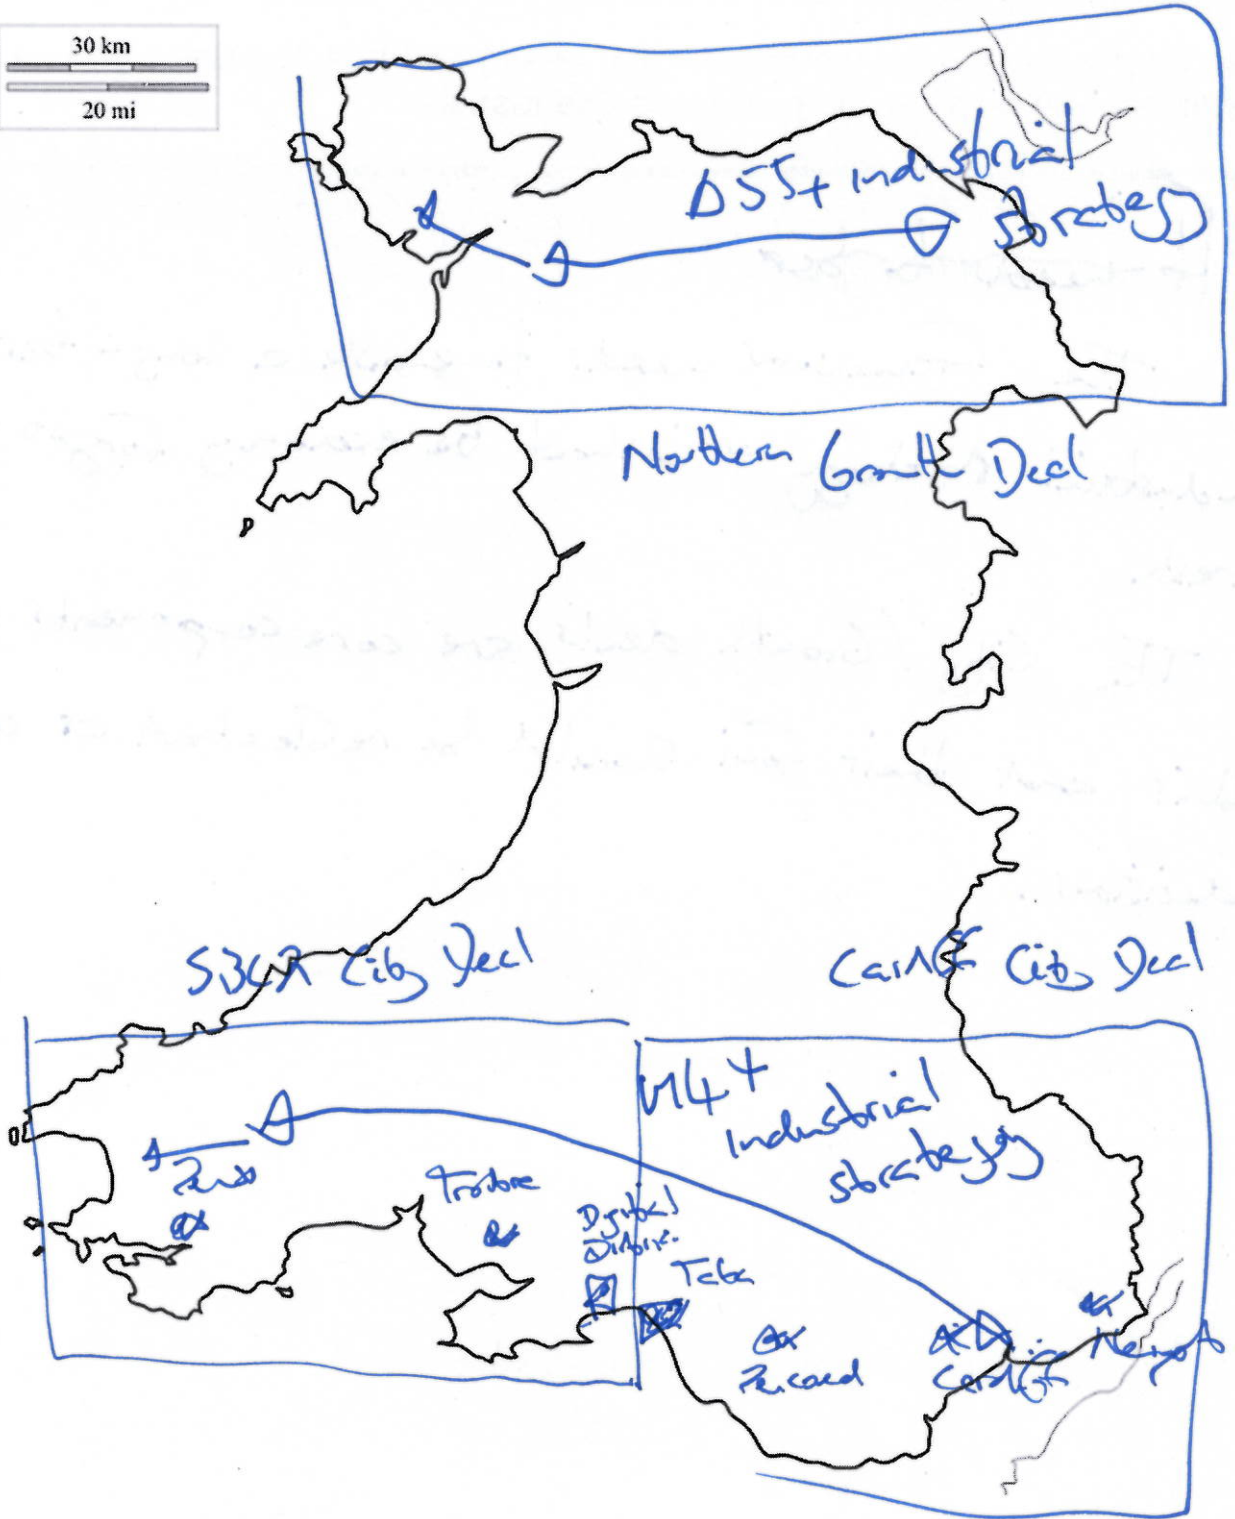 30 km
20 mi
A55+ Industrial
Strategy
Northern Growth Deal
SBCR City Deal
Cardiff City Deal
M4+
Industrial
Strategy
Trostre
Digital
District
Tata
Pencoed
Cardiff
Newport